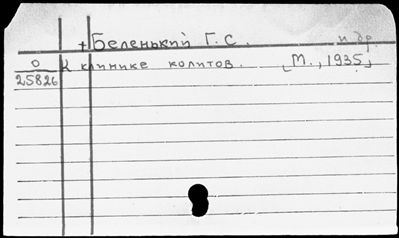 + Беленький Г. С. и др.
О К клинике колитов. [М., 1935]
25826